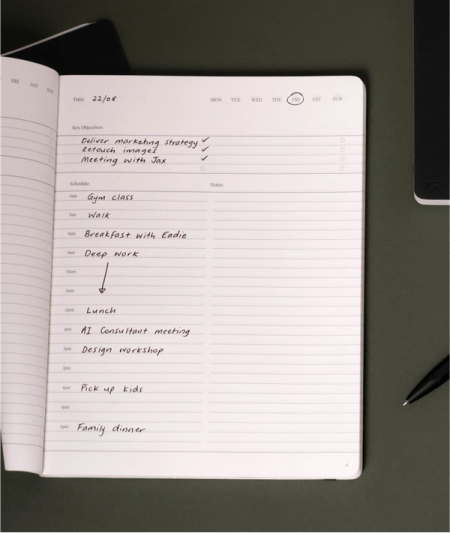 FRI SAT SUN
Date: 22/08 MON TUE WED THU FRI SAT SUN
Key Objectives
Deliver marketing strategy ✓
Retouch images ✓
Meeting with Jax ✓
Schedule Notes
6am Gym class
7am Walk
8am Breakfast with Eadie
9am Deep work
10am
11am
12pm Lunch
1pm AI Consultant meeting
2pm Design workshop
3pm
4pm Pick up kids
5pm
6pm Family dinner